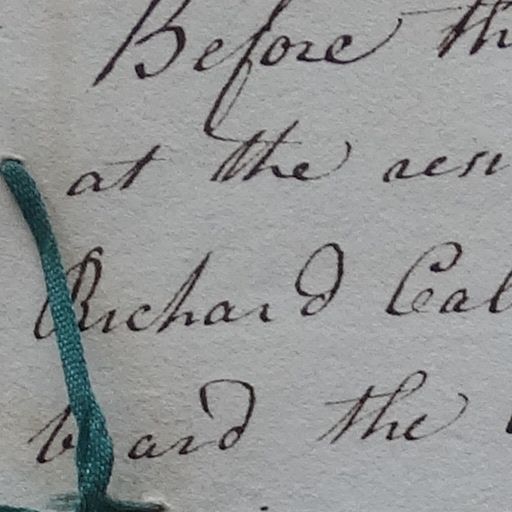 Before th
at the resi
Richard Cal
ward the